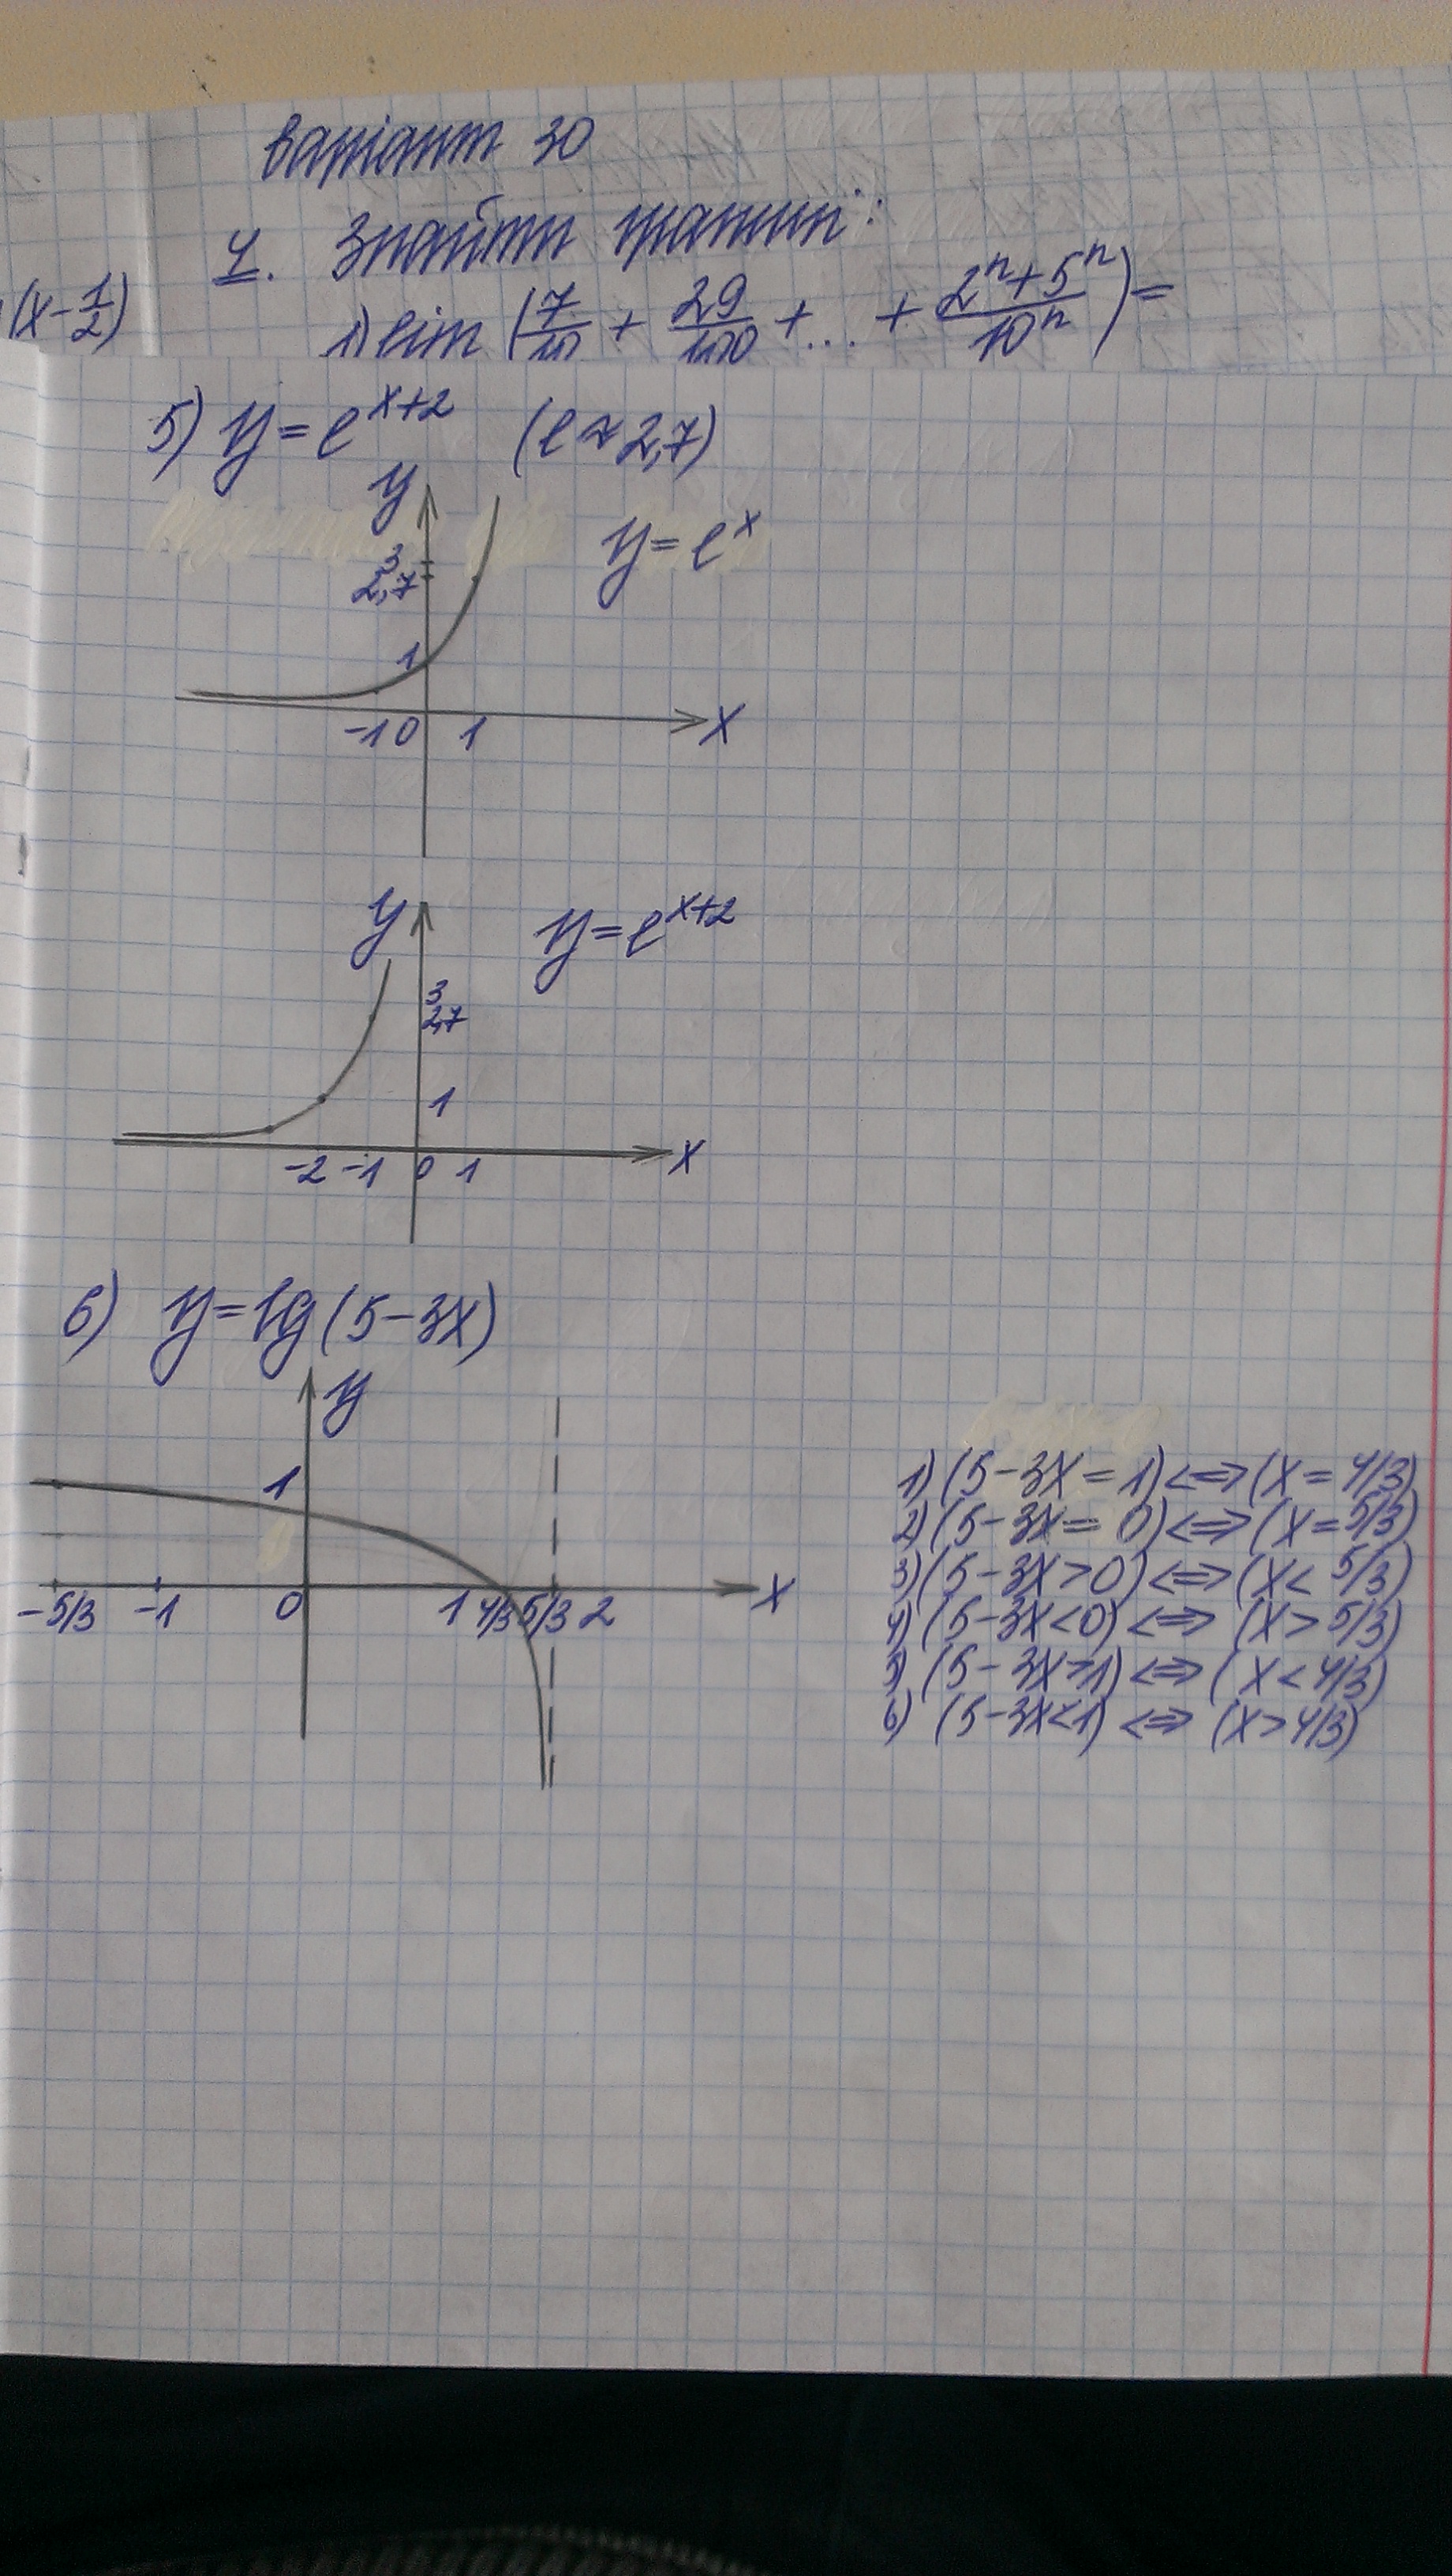 варіант 30
4. Знайти границі:
(x-1/2)
1) lim (7/10 + 29/100 + ... + (2^n+5^n)/10^n) =
5) y=e^(x+2) (e≈2,7)
y
y=e^x
3
2,7
1
-1 0 1 x
y
y=e^(x+2)
3
2,7
1
-2 -1 0 1 x
6) y=lg(5-3x)
y
1
-5/3 -1 0 1 4/3 5/3 2 x
1) (5-3x=1)<=>(x=4/3)
2) (5-3x=0)<=>(x=5/3)
3) (5-3x>0)<=>(x<5/3)
4) (5-3x<0)<=>(x>5/3)
5) (5-3x>1)<=>(x<4/3)
6) (5-3x<1)<=>(x>4/3)